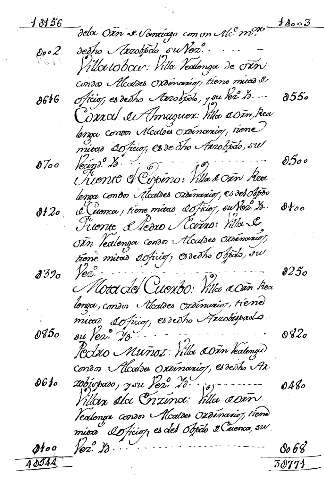 18156 18003
dela Orn de Santiago con un Alce maor
8002 dedho Arzobpdo, su Vezo
Villaescobar: Villa Realenga de orn
con dos Alcaldes ordinarios, tiene mitad de
8616 oficios, es de dho Arzobpdo, y su Vezo 8550
Corral de Almaguer: Villa de orn, Rea
lenga con dos Alcaldes ordinarios, tiene
mitad de oficios, es de dho Arzobpdo, su
8700 8500
Fuente el Espino: Villa de orn Rea
lenga con dos Alcaldes ordinarios, es del obpdo
8120 de Cuenca, tiene mitad de oficios, su Vezo 8100
Fuente de Pedro Narro: Villa de
orn Realenga con dos Alcaldes ordinarios,
tiene mitad de oficios, es de dho obpdo, su
8390 Vezo 8250
Mota del Cuerbo: Villa de orn Rea
lenga, con dos Alcaldes ordinarios, tiene
mitad de oficios, es de dho Arzobispado
8850 su Vezo 8820
Pedro Muñoz: Villa de orn Realenga
con dos Alcaldes ordinarios, es de dho Ar
8610 zobispado, y su Vezo 8480
Villar de la Enzina: Villa de orn
Realenga con dos Alcaldes ordinarios, tiene
mitad de oficios, es del obpdo de Cuenca, su
8100 Vezo 8068